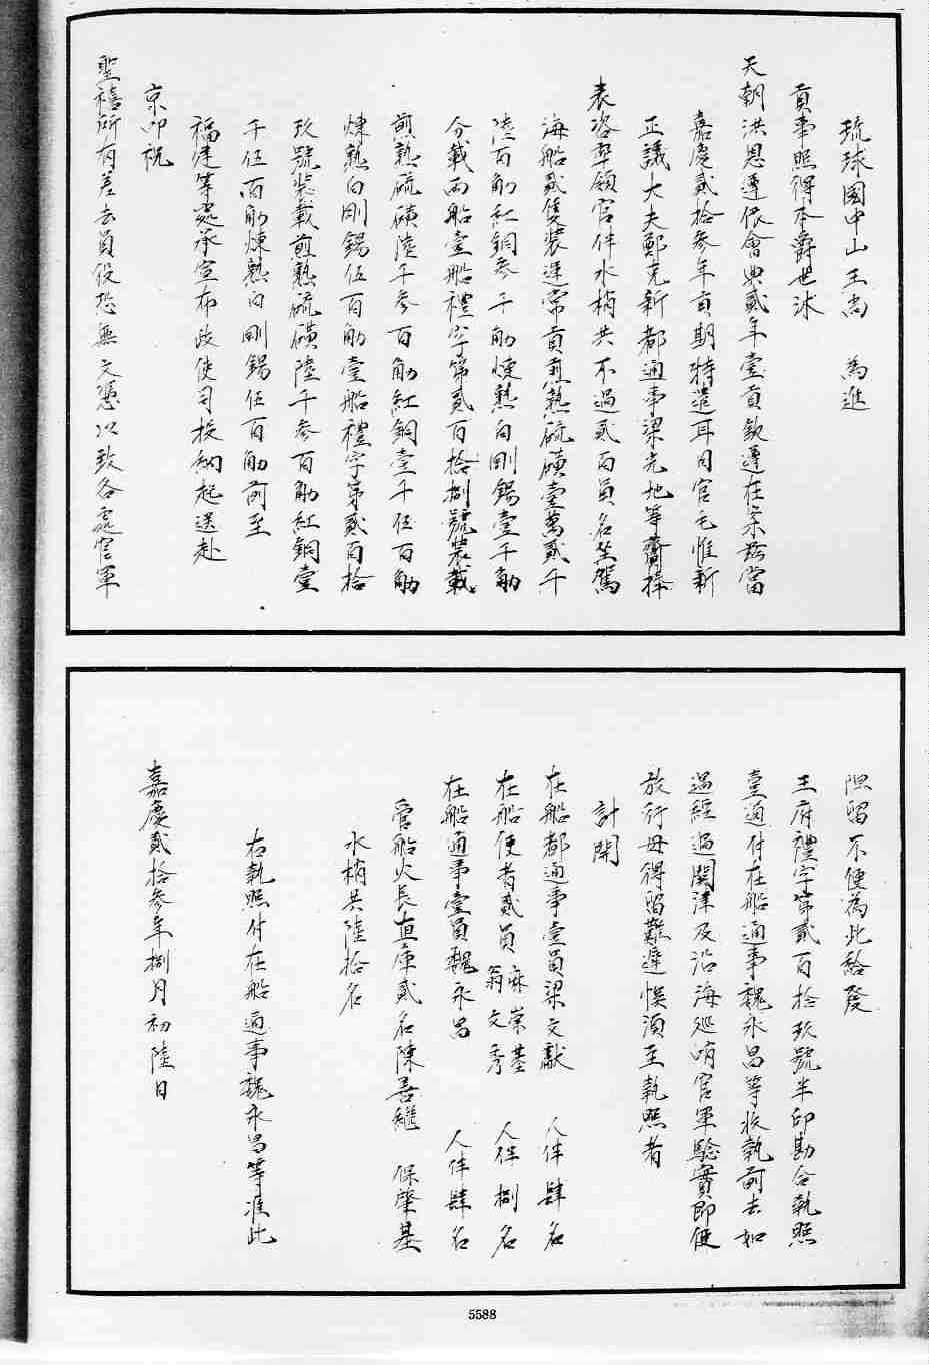 琉球國中山王尚　為進
貢事照得本爵世沐
天朝洪恩遵依會典貳年壹貢欽遵在案茲當
嘉慶貳拾參年貢期特遣耳目官毛惟新
正議大夫鄭克新都通事梁光地等齎捧
表咨率領官伴水梢共不過貳百員名坐駕
海船貳隻裝運常貢煎熟硫磺壹萬貳千
陸百觔紅銅參千觔煉熟白剛錫壹千觔
分載兩船壹船禮字第貳百拾捌號裝載
煎熟硫磺陸千參百觔紅銅壹千伍百觔
煉熟白剛錫伍百觔壹船禮字第貳百拾
玖號裝載煎熟硫磺陸千參百觔紅銅壹
千伍百觔煉熟白剛錫伍百觔前至
福建等處承宣布政使司投納起送赴
京叩祝
聖禧所有差去員役恐無文憑以致各處官軍
阻留不便為此給發
王府禮字第貳百拾玖號半印勘合執照
壹通付在船通事魏永昌等收執前去如
遇經過關津及沿海巡哨官軍驗實即便
放行毋得留難遲悞須至執照者
計開
在船都通事壹員梁文獻　人伴肆名
在船使者貳員麻崇基翁文秀　人伴捌名
在船通事壹員魏永昌　人伴肆名
管船火長直庫貳名陳善繼　保肇基
水梢共陸拾名
右執照付在船通事魏永昌等准此
嘉慶貳拾參年捌月初陸日
5588